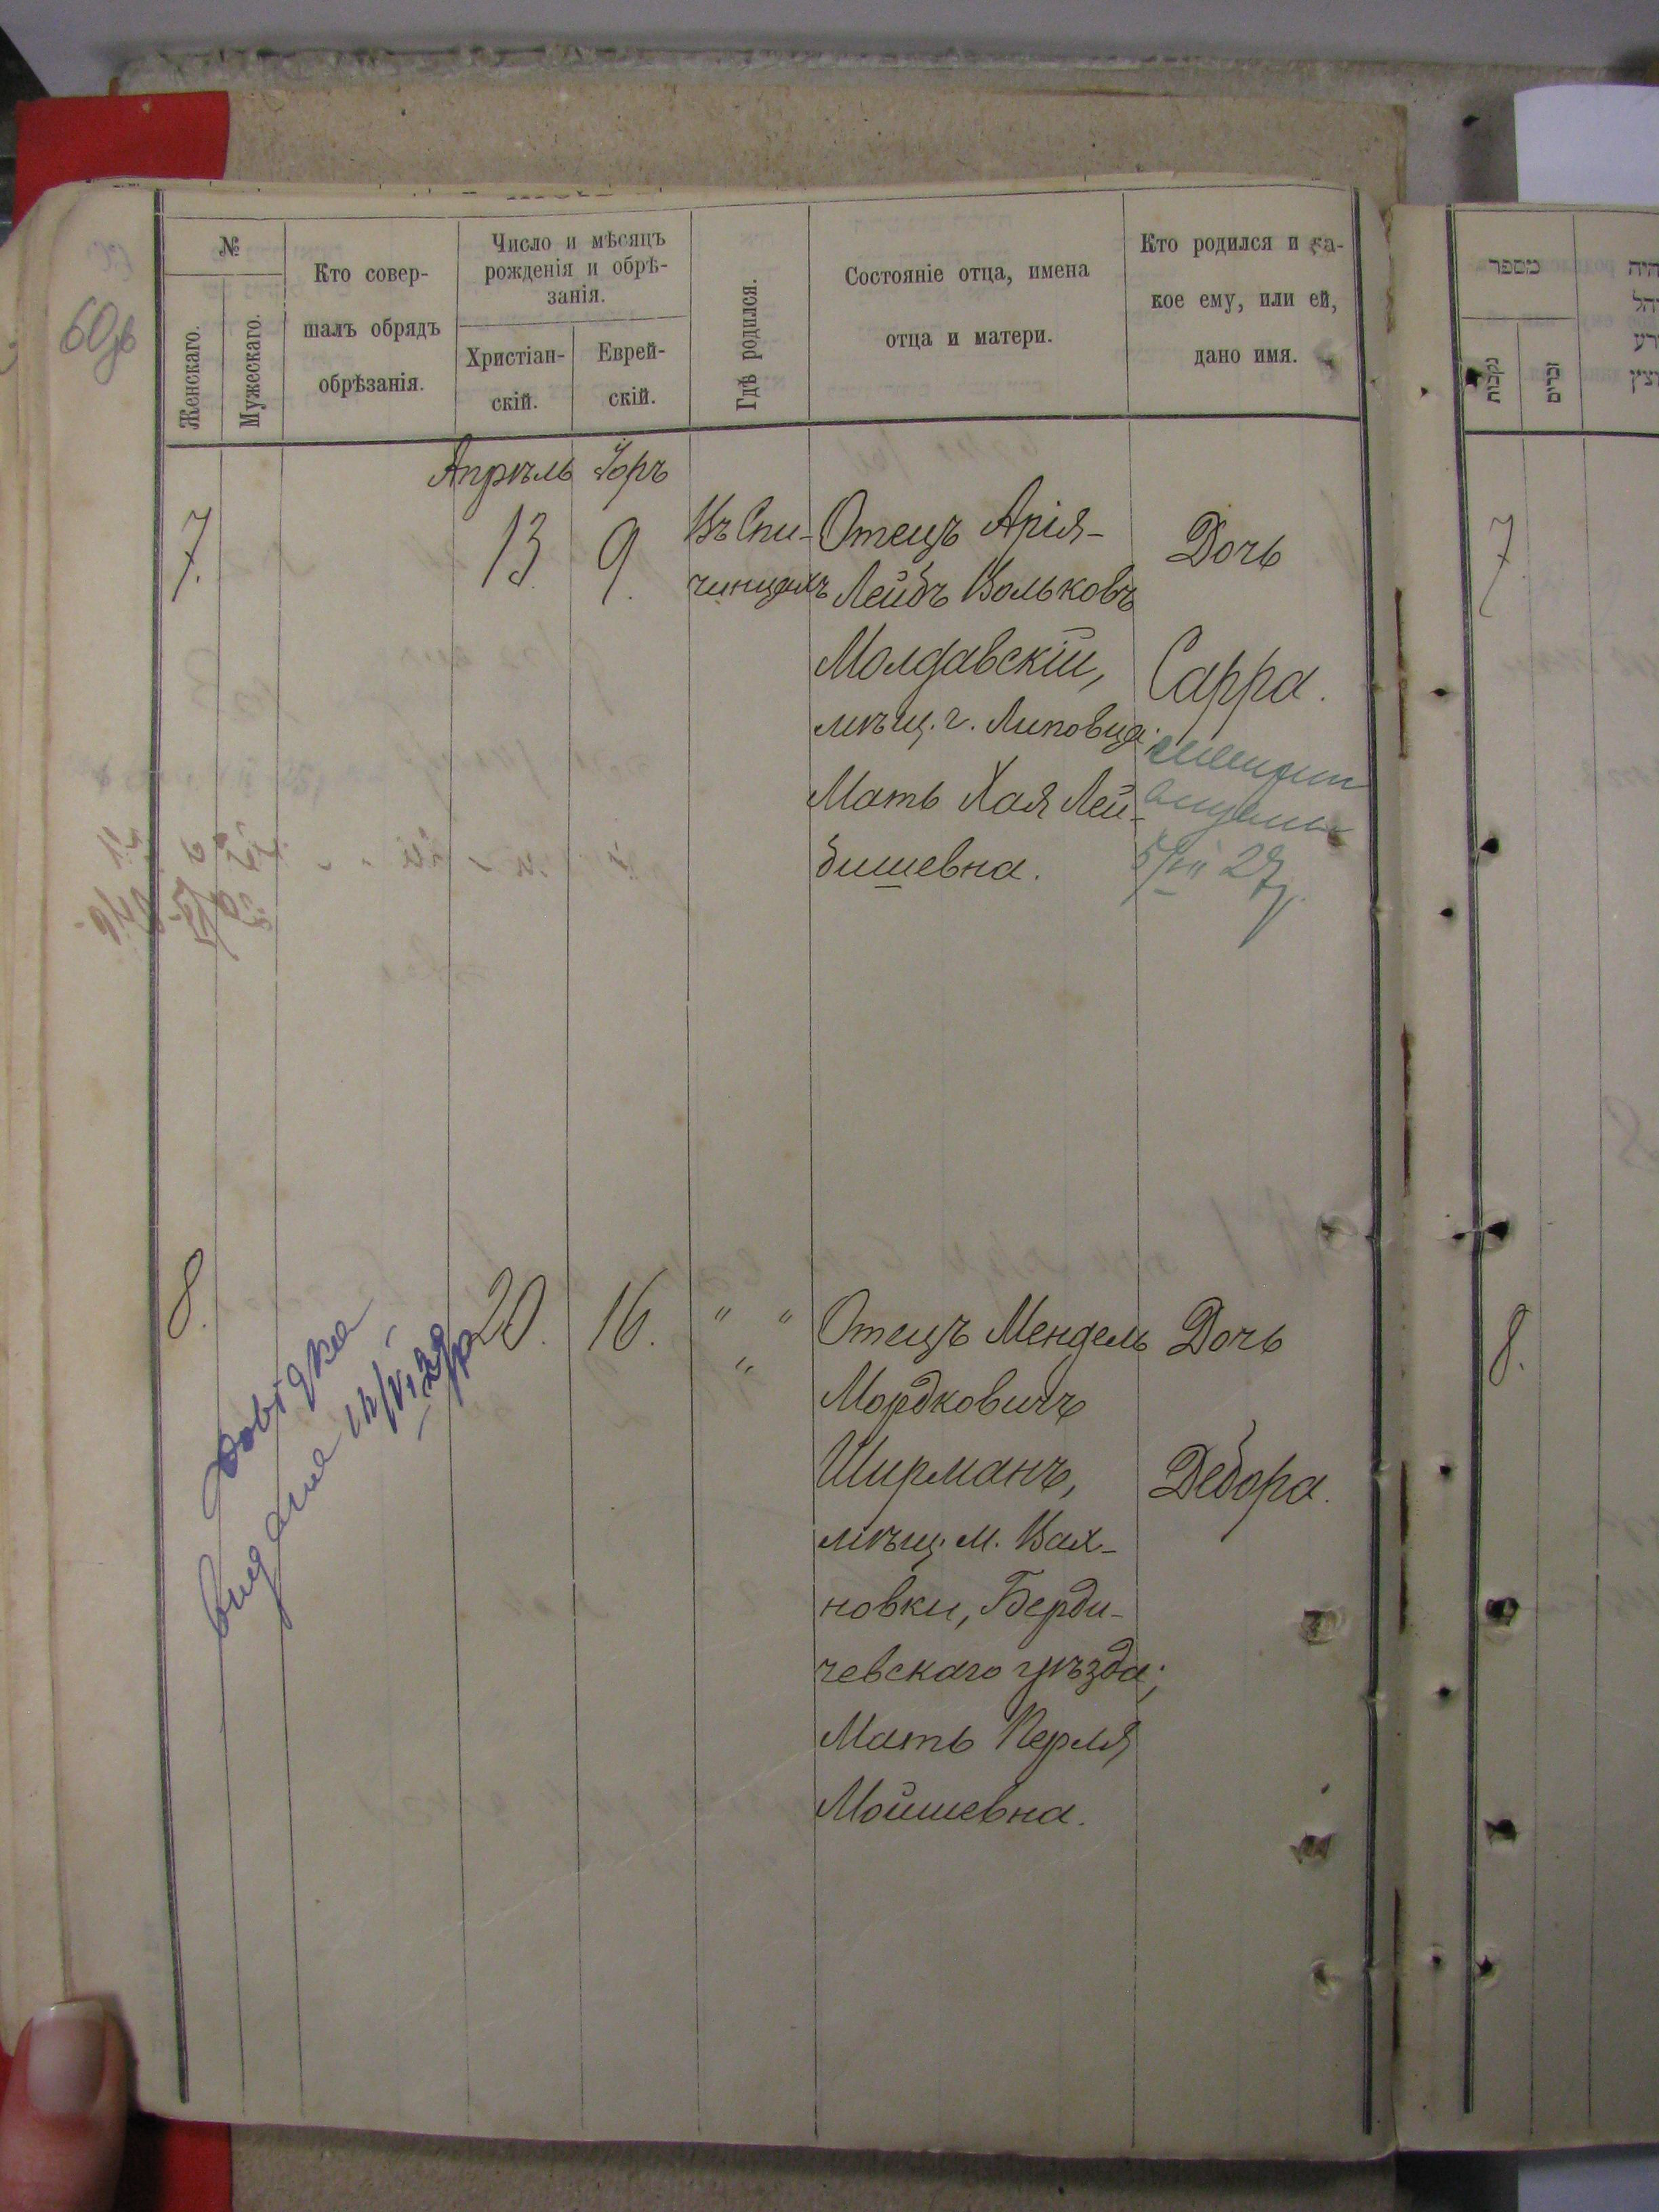 60об
№
Женскаго.
Мужескаго.
Кто совер-
шалъ обрядъ
обрѣзанія.
Число и мѣсяцъ
рожденія и обрѣ-
занія.
Христіан-
скій.
Еврей-
скій.
Гдѣ родился.
Состояніе отца, имена
отца и матери.
Кто родился и ка-
кое ему, или ей,
дано имя.
Апрѣль Іоръ
7. 13. 9.
Въ Спи-
чинцахъ
Отецъ Арія-
Лейбъ Вольковъ
Молдавскій,
мѣщ. г. Липовца;
Мать Хая Лей-
бишевна.
Дочь
Сарра.
5/VII 27р.
8. 20. 16. " "
"
Отецъ Мендель
Мордковичъ
Ширманъ,
мѣщ. м. Вах-
новки, Берди-
чевскаго уѣзда;
Мать Перля
Мойшевна.
Дочь
Дебора.
Довідка
видана
מספר
נקבות
זכרים
7
8.